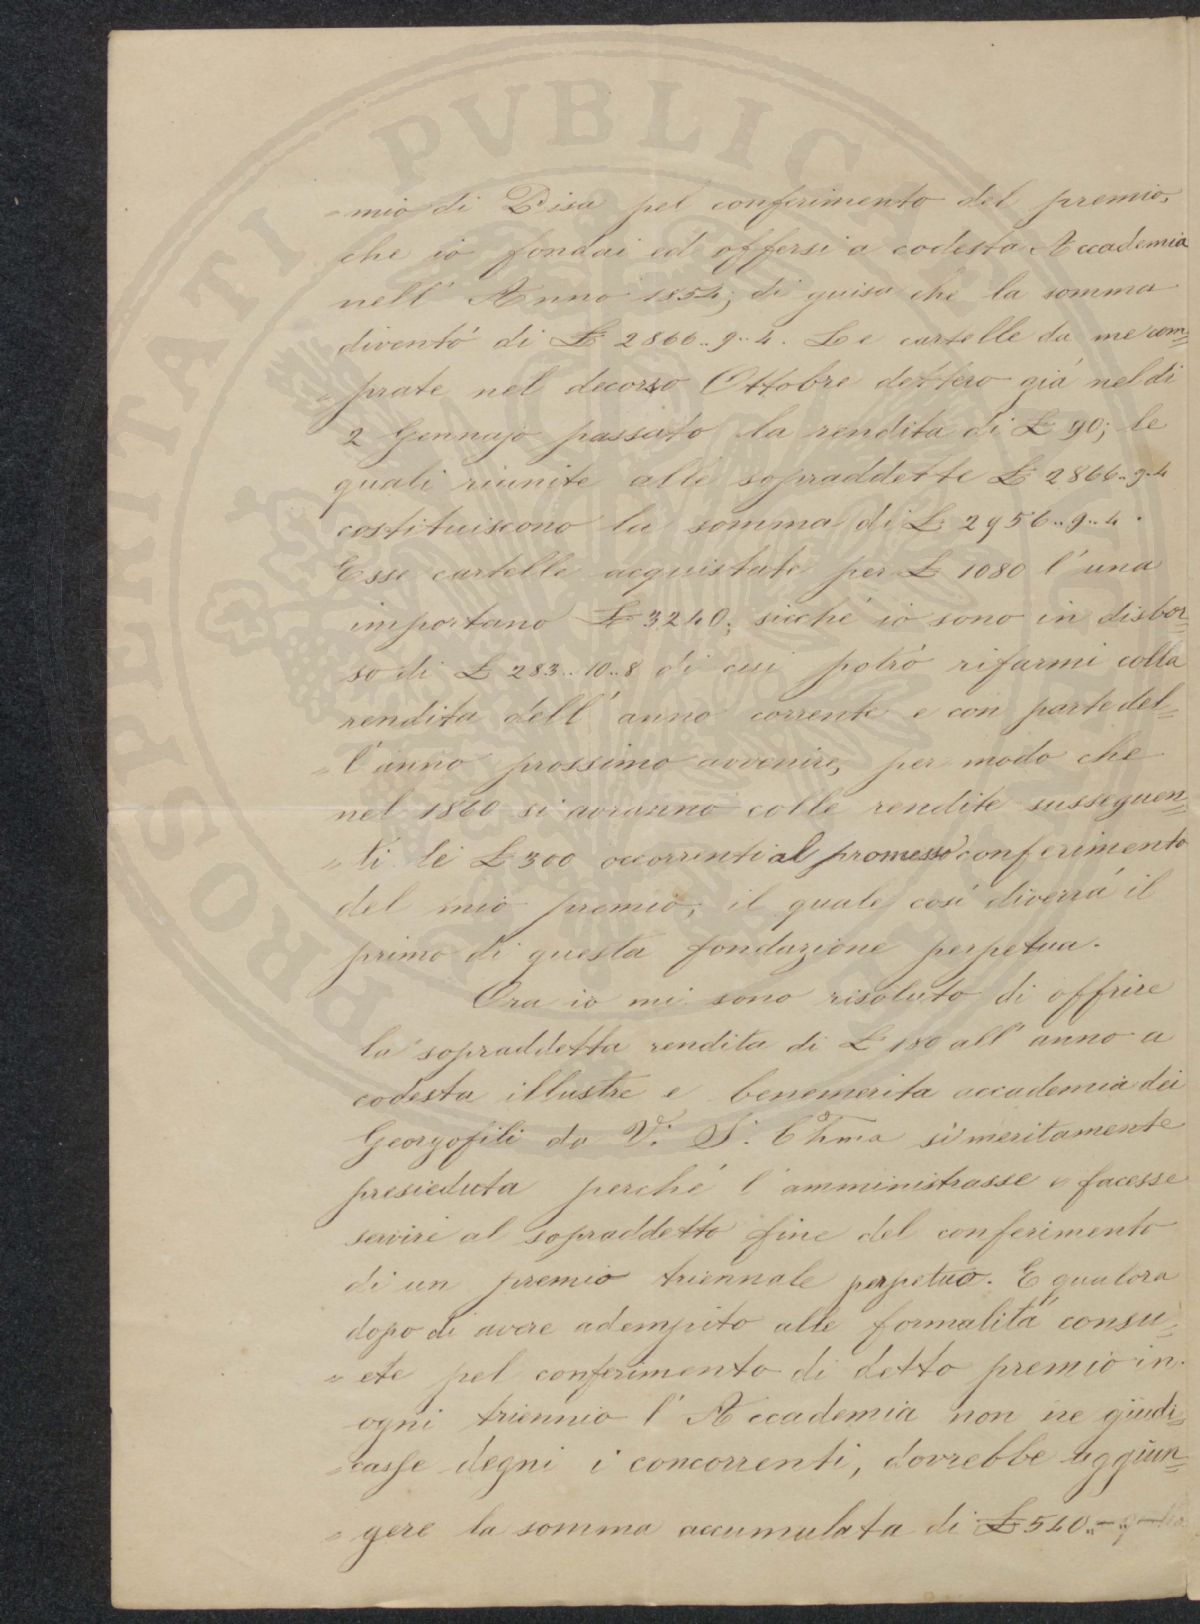 =mio di Pisa pel conferimento del premio,
che io fondai ed offersi a codesta Accademia
nell' Anno 1854; di guisa che la somma
diventó di £ 2866..9..4. Le cartelle da me com=
=prate nel decorso Ottobre dettero giá nel di
2 Gennajo passato la rendita di £ 90; le
quali riunite alle sopraddette £ 2866..9..4
costituiscono la somma di £ 2956..9..4.
Esse cartelle acquistate per £ 1080 l'una
importano £ 3240; sicché io sono in disbor=
so di £ 283..10..8 di cui potró rifarmi colla
rendita dell'anno corrente e con parte del=
=l'anno prossimo avvenire, per modo che
nel 1860 si avranno colle rendite susseguen=
=ti le £ 300 occorrenti al promesso conferimento
del mio premio; il quale cosí diverrá il
primo di questa fondazione perpetua.
Ora io mi sono risoluto di offrire
la sopraddetta rendita di £ 180 all'anno a
codesta illustre e benemerita accademia dei
Georgofili da V. S. Illma sí meritamente
presieduta perché l'amministrasse e facesse
servire al sopraddetto fine del conferimento
di un premio triennale perpetuo. E qualora
dopo di avere adempito alle formalitá consu=
=ete pel conferimento di detto premio in
ogni triennio l'Accademia non ne giudi=
=casse degni i concorrenti, dovrebbe aggiun=
=gere la somma accumulata di £ 540..—..—
PROSPERITATI PVBLICAE